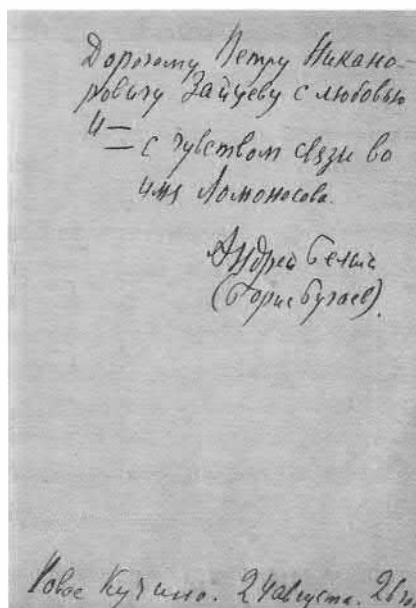 Дорогому Петру Никано-
ровичу Зайцеву с любовью
и =
с чувством связи во
имя Ломоносова.
Андрей Белый
(Борис Бугаев).
Новое Кучино. 24 августа. 26 г.